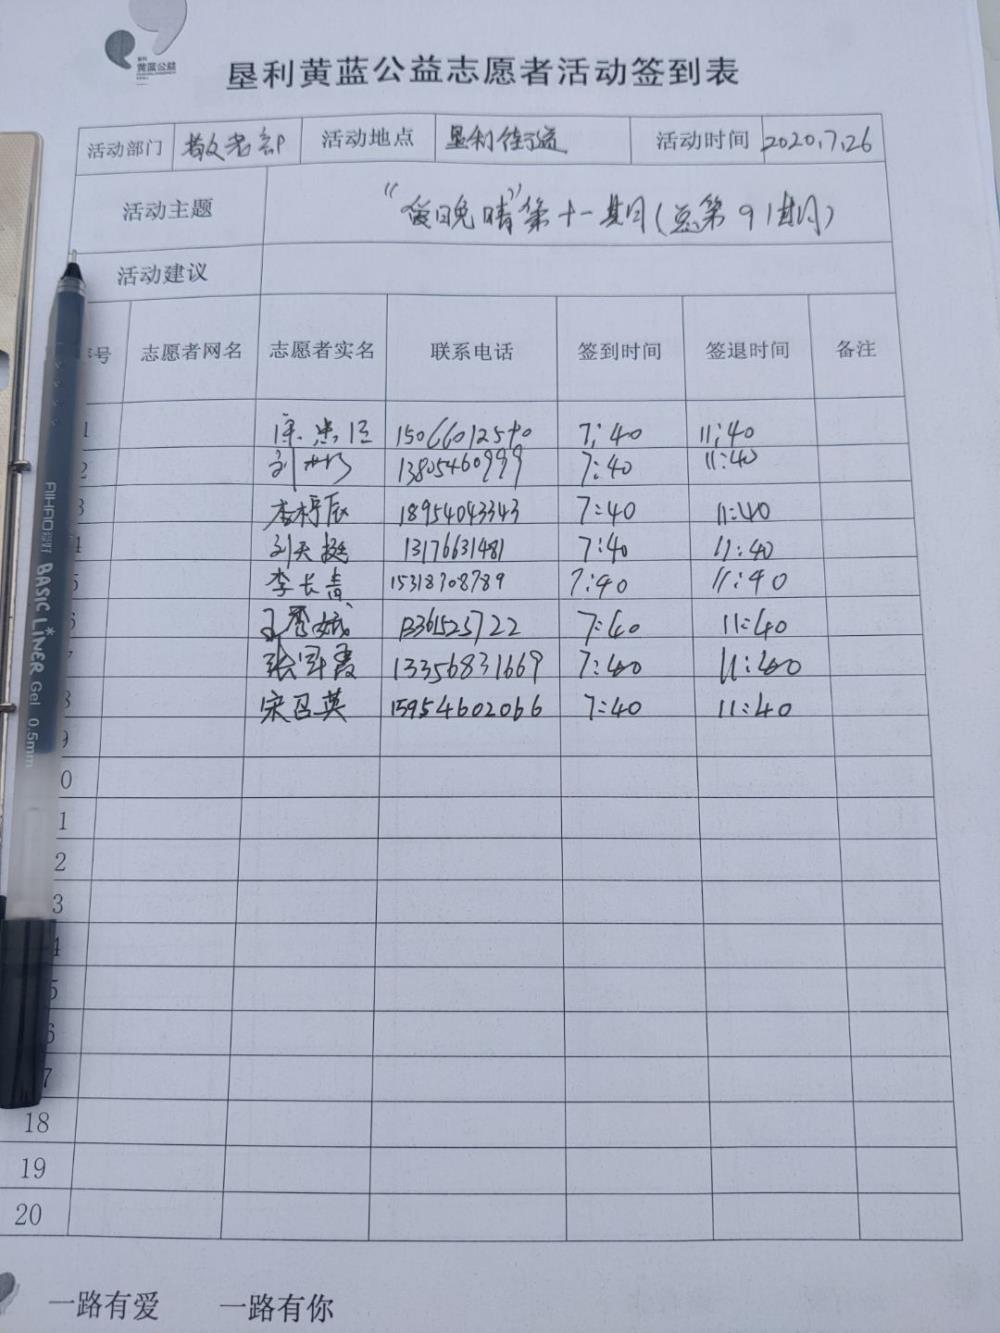 垦利
黄蓝公益
垦利黄蓝公益志愿者活动签到表
活动部门 敬老部 活动地点 垦利街道 活动时间 2020.7.26
活动主题 “爱晚晴”第十一期(总第91期)
活动建议
序号 志愿者网名 志愿者实名 联系电话 签到时间 签退时间 备注
1 15066012590 7:40 11:40
2 刘 13805460999 7:40 11:40
3 李梓辰 18954043343 7:40 11:40
4 刘天挺 13176631481 7:40 11:40
5 李长青 15318308789 7:40 11:40
6 王秀娥 13361525722 7:40 11:40
7 张军霞 13356831669 7:40 11:40
8 宋召英 15954602066 7:40 11:40
9
0
1
2
3
4
5
6
7
18
19
20
AIHAO爱好 BASIC LINER Gel 0.5mm
一路有爱 一路有你